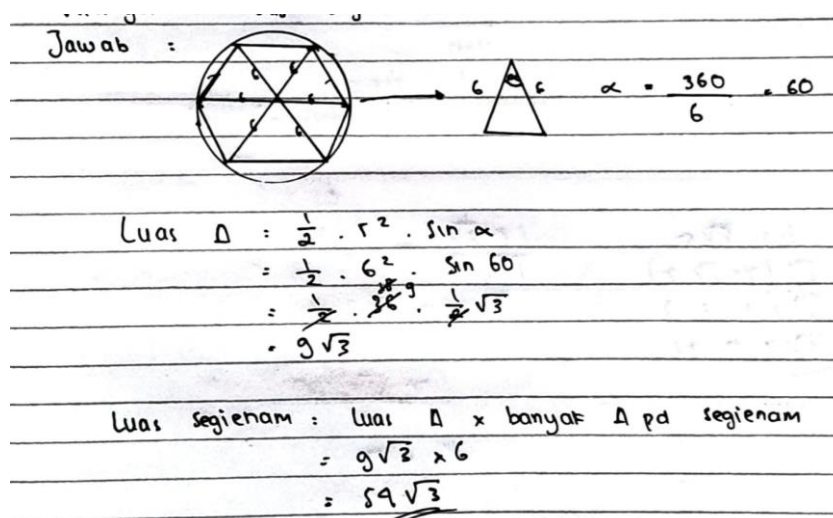 Jawab :
6 6 6 6 6 6
6 6 α = 360/6 = 60
Luas Δ : 1/2 . r² . sin α
= 1/2 . 6² . sin 60
= 1/2 . 36 18 9 . 1/2 √3
= 9√3
Luas segienam = luas Δ x banyak Δ pd segienam
= 9√3 x 6
= 54√3